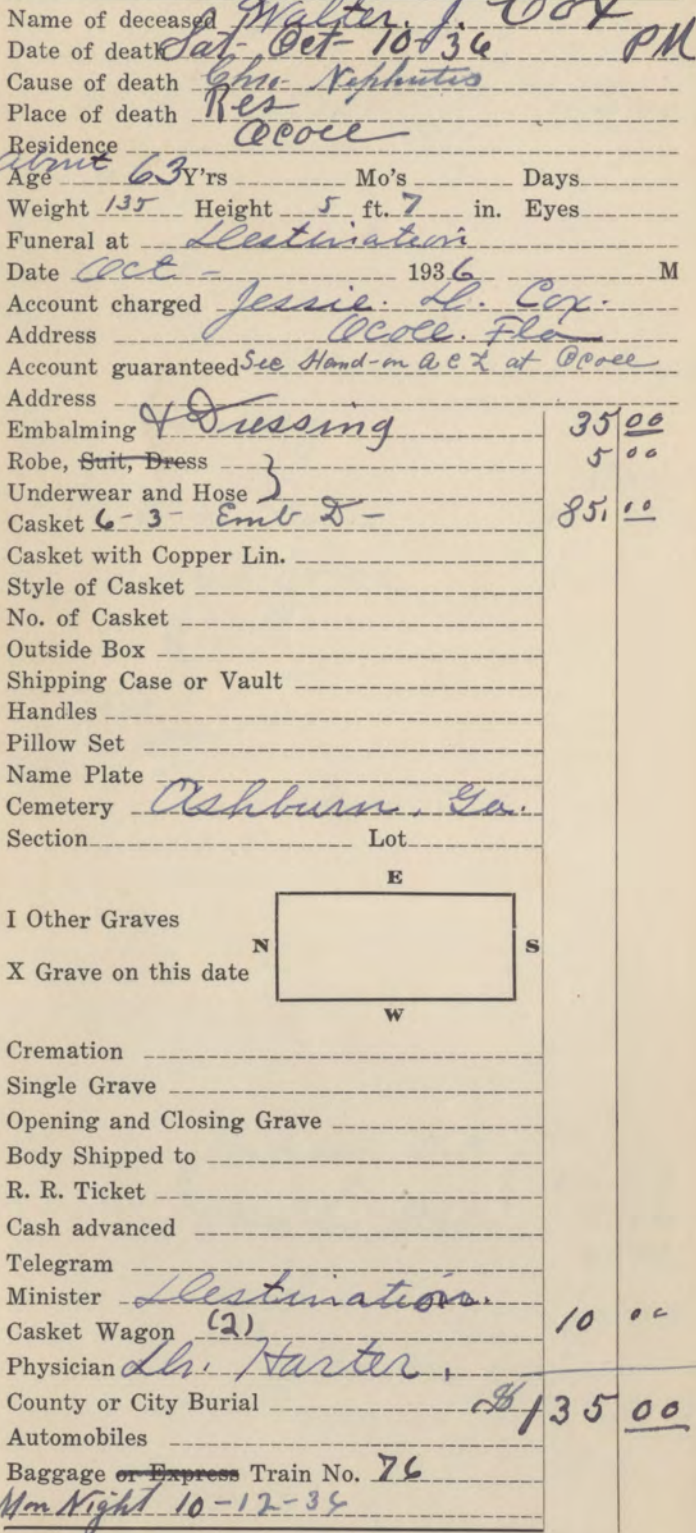 Name of deceased Walter. J. Cox
Date of death Sat- Oct- 10-36 PM
Cause of death Chro- Nephritis
Place of death Res
Residence Ocoee
About
Age 63 Y'rs Mo's Days
Weight 135 Height 5 ft. 7 in. Eyes
Funeral at Destination
Date Oct - 1936 M
Account charged Jessie. D. Cox.
Address Ocoee. Fla
Account guaranteed See Hand-on A C L at Ocoee
Address
Embalming & Dressing 35 00
Robe, Suit, Dress 5 00
Underwear and Hose
Casket 6-3- Emb D- 85. 00
Casket with Copper Lin.
Style of Casket
No. of Casket
Outside Box
Shipping Case or Vault
Handles
Pillow Set
Name Plate
Cemetery Ashburn, Ga.
Section Lot
E
I Other Graves
N S
X Grave on this date
W
Cremation
Single Grave
Opening and Closing Grave
Body Shipped to
R. R. Ticket
Cash advanced
Telegram
Minister Destination.
Casket Wagon (2) 10 00
Physician Dr. Harter,
County or City Burial $135 00
Automobiles
Baggage or Express Train No. 76
Mon Night 10-12-36